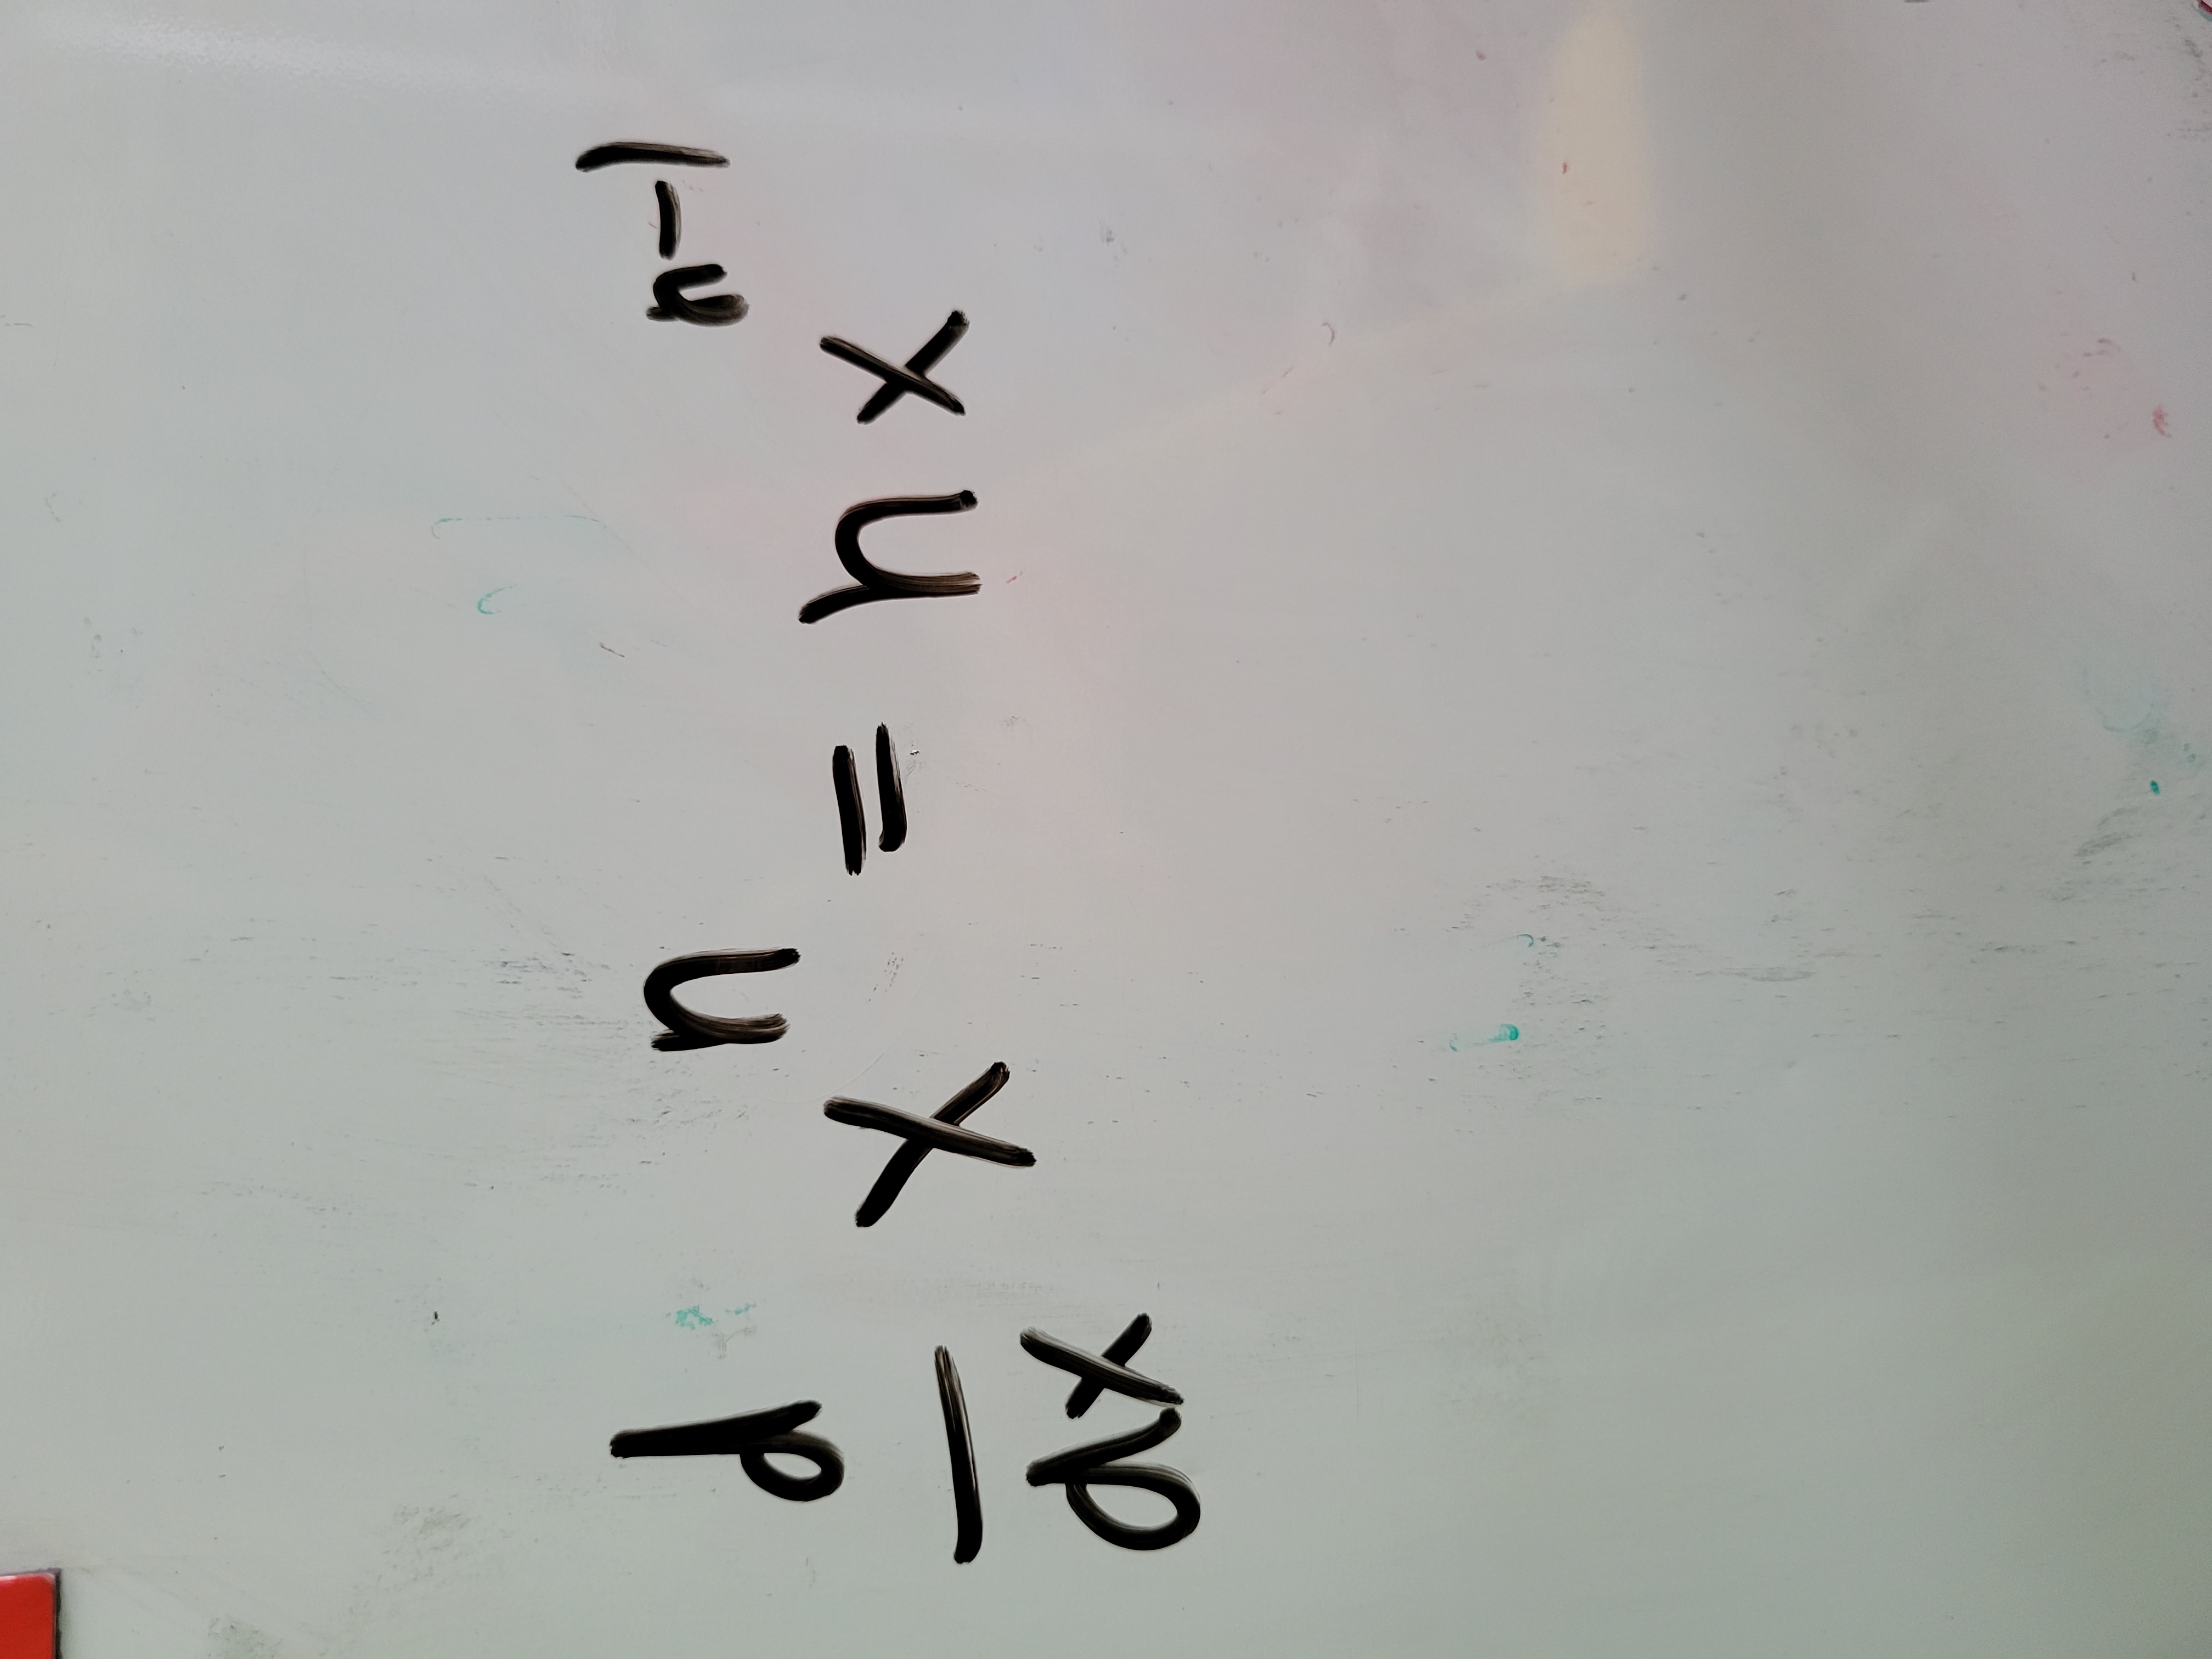 d/dx x^n = nx^(n-1)